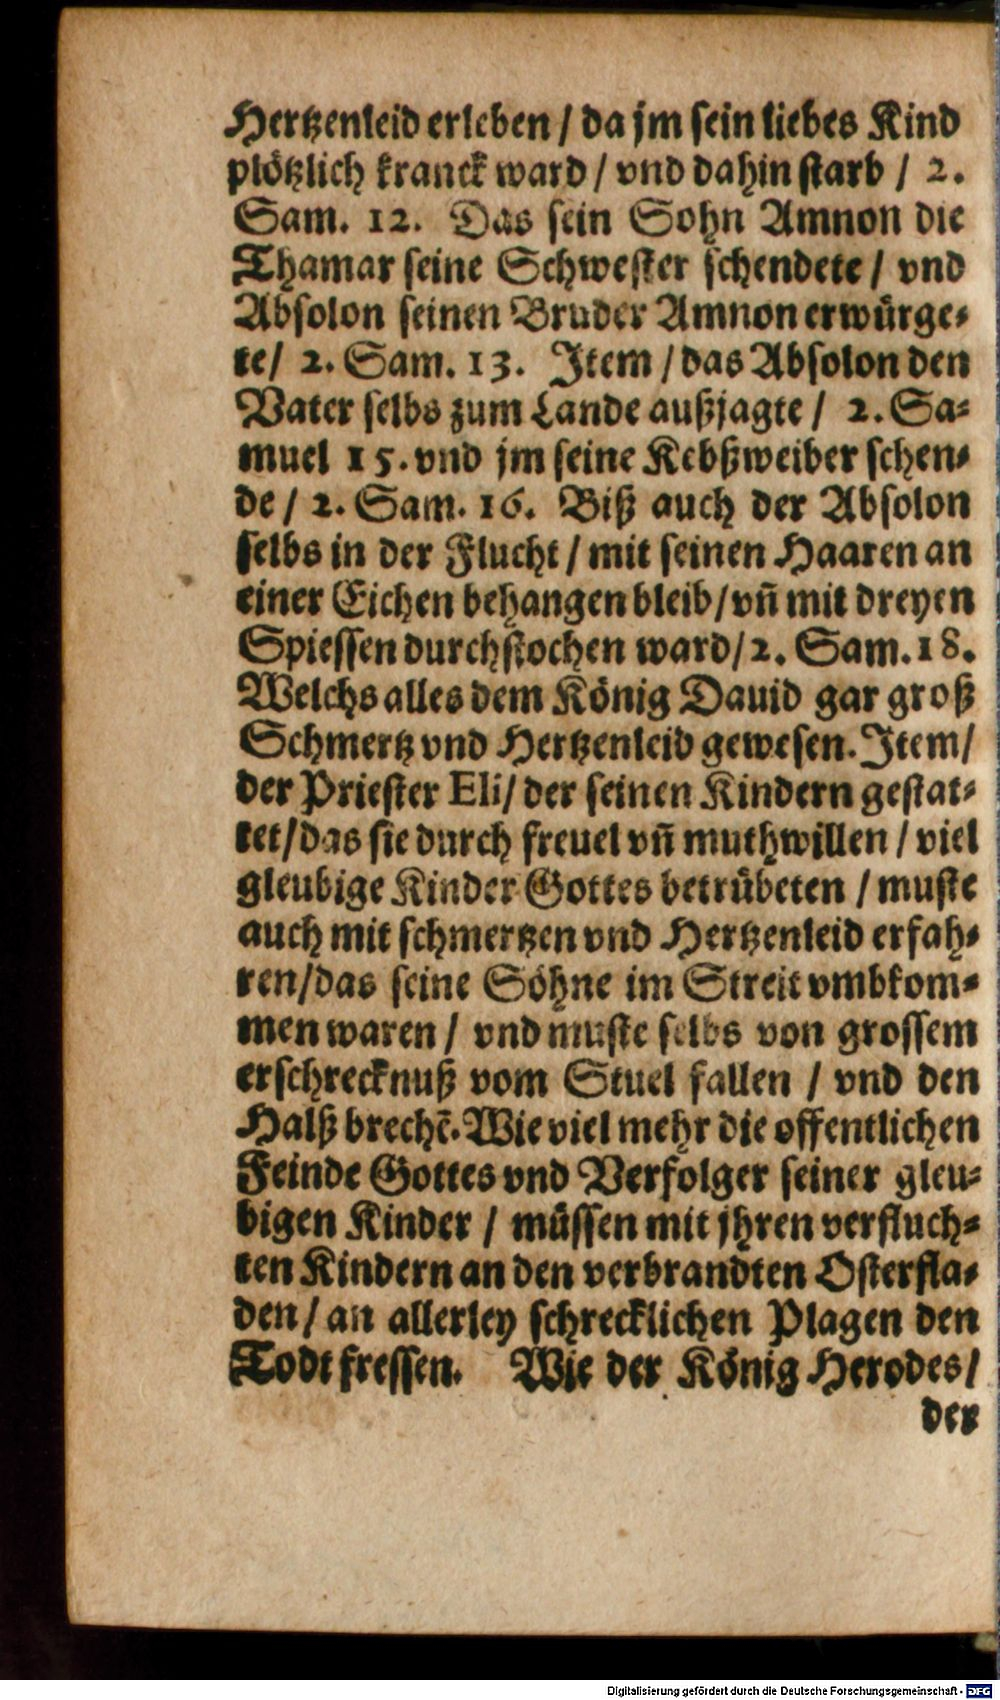 Hertzenleid erleben / da jm sein liebes Kind
plötzlich kranck ward / vnd dahin starb / 2.
Sam. 12. Das sein Sohn Amnon die
Thamar seine Schwester schendete / vnd
Absolon seinen Bruder Amnon erwürge-
te / 2. Sam. 13. Item / das Absolon den
Vater selbs zum Lande außjagte / 2. Sa-
muel 15. vnd jm seine Kebßweiber schen-
de / 2. Sam. 16. Biß auch der Absolon
selbs in der Flucht / mit seinen Haaren an
einer Eichen behangen bleib / vñ mit dreyen
Spiessen durchstochen ward / 2. Sam. 18.
Welchs alles dem König Dauid gar groß
Schmertz vnd Hertzenleid gewesen. Item /
der Priester Eli / der seinen Kindern gestat-
tet / das sie durch freuel vñ muthwillen / viel
gleubige Kinder Gottes betrübeten / muste
auch mit schmertzen vnd Hertzenleid erfah-
ren / das seine Söhne im Streit vmbkom-
men waren / vnd muste selbs von grossem
erschrecknuß vom Stuel fallen / vnd den
Halß brechẽ. Wie viel mehr die offentlichen
Feinde Gottes vnd Verfolger seiner gleu-
bigen Kinder / müssen mit jhren verfluch-
ten Kindern an den verbrandten Osterfla-
den / an allerley schrecklichen Plagen den
Todt fressen. Wie der König Herodes /
der
Digitalisierung gefördert durch die Deutsche Forschungsgemeinschaft - DFG